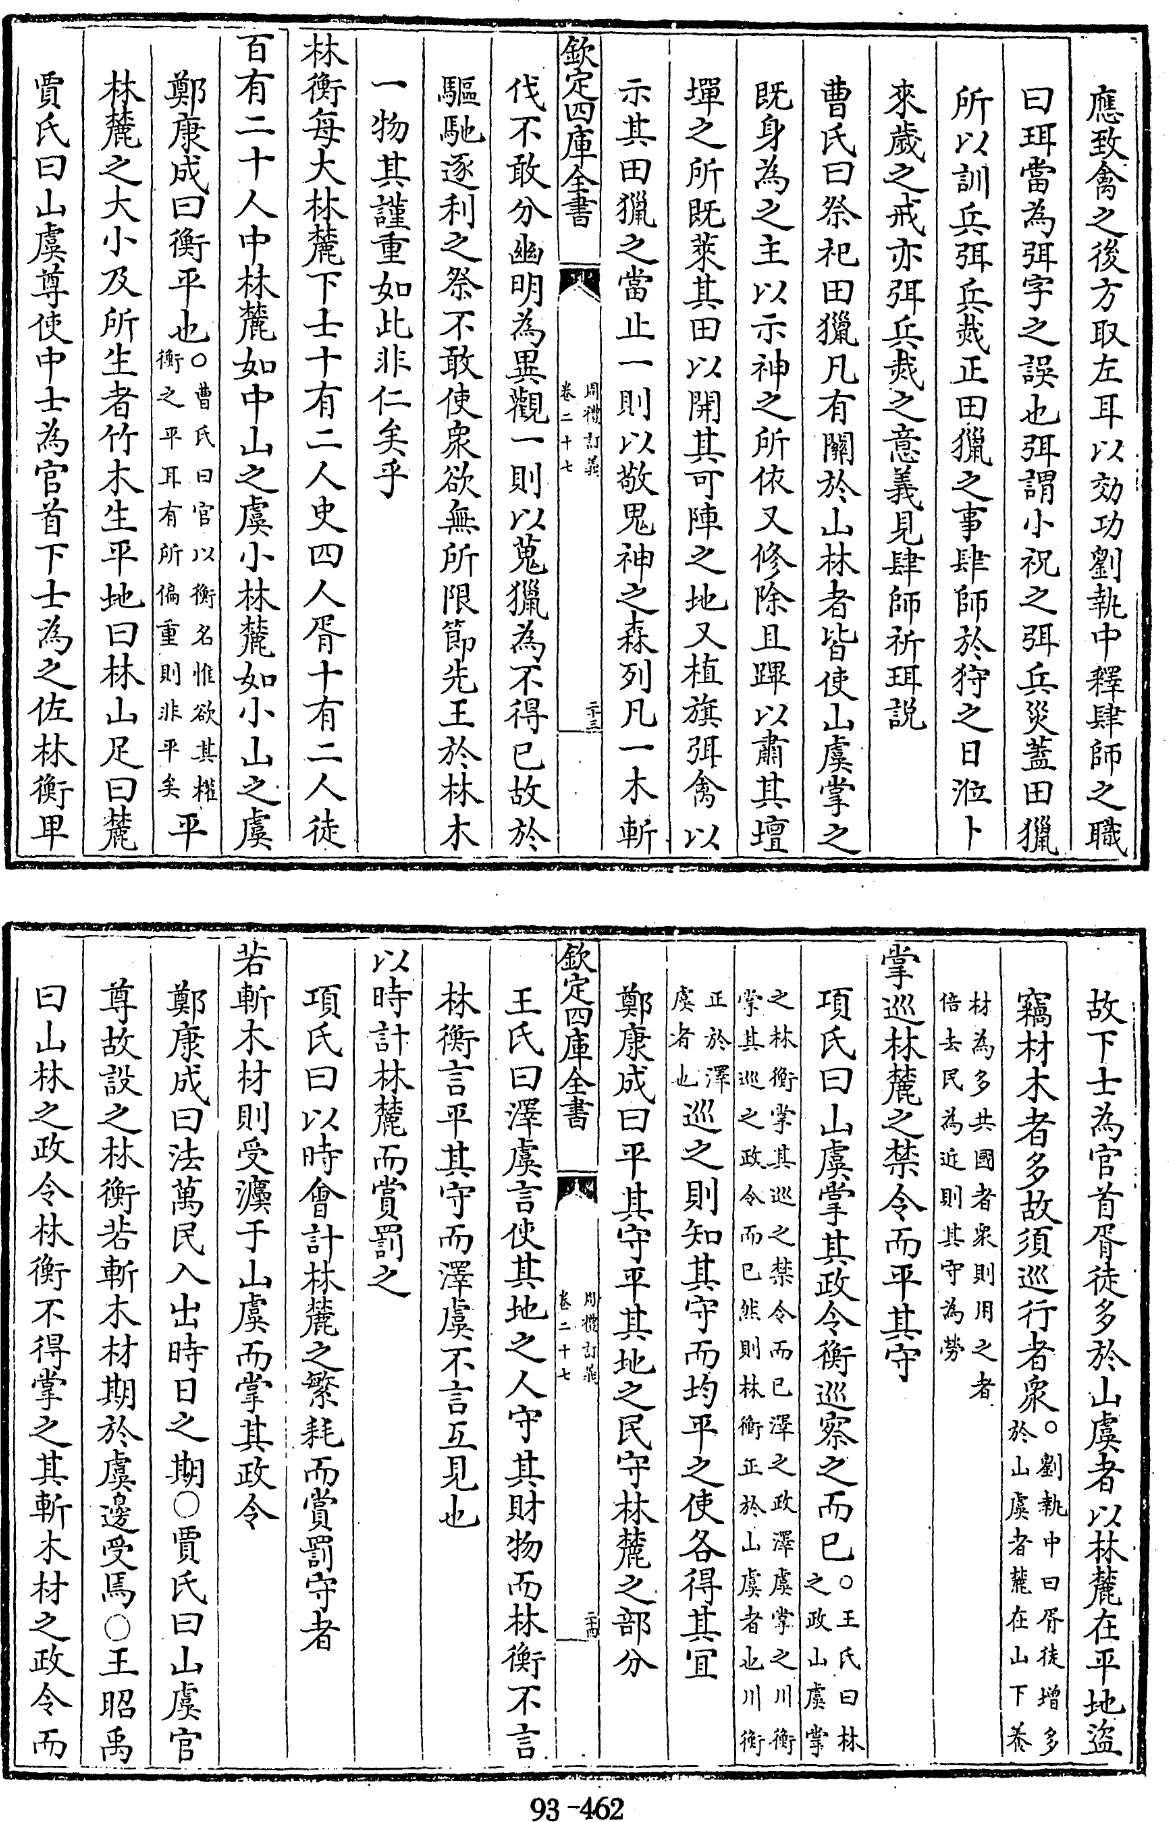 應致禽之後方取左耳以効功劉執中釋肆師之職
曰珥當為弭字之誤也弭謂小祝之弭兵災蓋田獵
所以訓兵弭兵烖正田獵之事肆師於狩之日涖卜
來歲之戒亦弭兵烖之意義見肆師祈珥説
曹氏曰祭祀田獵凡有闗於山林者皆使山虞掌之
既身為之主以示神之所依又修除且蹕以肅其壇
墠之所既萊其田以開其可陣之地又植旗弭禽以
示其田獵之當止一則以敬鬼神之森列凡一木斬
欽定四庫全書
周禮訂義
卷二十七
二十三
伐不敢分幽明為異觀一則以蒐獵為不得已故於
驅馳逐利之祭不敢使衆欲無所限節先王於林木
一物其謹重如此非仁矣乎
林衡每大林麓下士十有二人史四人胥十有二人徒
百有二十人中林麓如中山之虞小林麓如小山之虞
鄭康成曰衡平也○曹氏曰官以衡名惟欲其權
衡之平耳有所偏重則非平矣平
林麓之大小及所生者竹木生平地曰林山足曰麓
賈氏曰山虞尊使中士為官首下士為之佐林衡卑
故下士為官首胥徒多於山虞者以林麓在平地盜
竊材木者多故須巡行者衆○劉執中曰胥徒增多
於山虞者麓在山下養
材為多共國者衆則用之者
倍去民為近則其守為勞
掌巡林麓之禁令而平其守
項氏曰山虞掌其政令衡巡察之而已○王氏曰林
之政山虞掌
之林衡掌其巡之禁令而已澤之政澤虞掌之川衡
掌其巡之政令而已然則林衡正於山虞者也川衡
正於澤
虞者也巡之則知其守而均平之使各得其宜
鄭康成曰平其守平其地之民守林麓之部分
欽定四庫全書
周禮訂義
卷二十七
二十四
王氏曰澤虞言使其地之人守其財物而林衡不言
林衡言平其守而澤虞不言互見也
以時計林麓而賞罰之
項氏曰以時會計林麓之繁耗而賞罰守者
若斬木材則受灋于山虞而掌其政令
鄭康成曰法萬民入出時日之期○賈氏曰山虞官
尊故設之林衡若斬木材期於虞邊受焉○王昭禹
曰山林之政令林衡不得掌之其斬木材之政令而
93-462